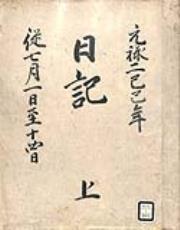 元禄二己巳年
日記 上
従七月一日至十四日